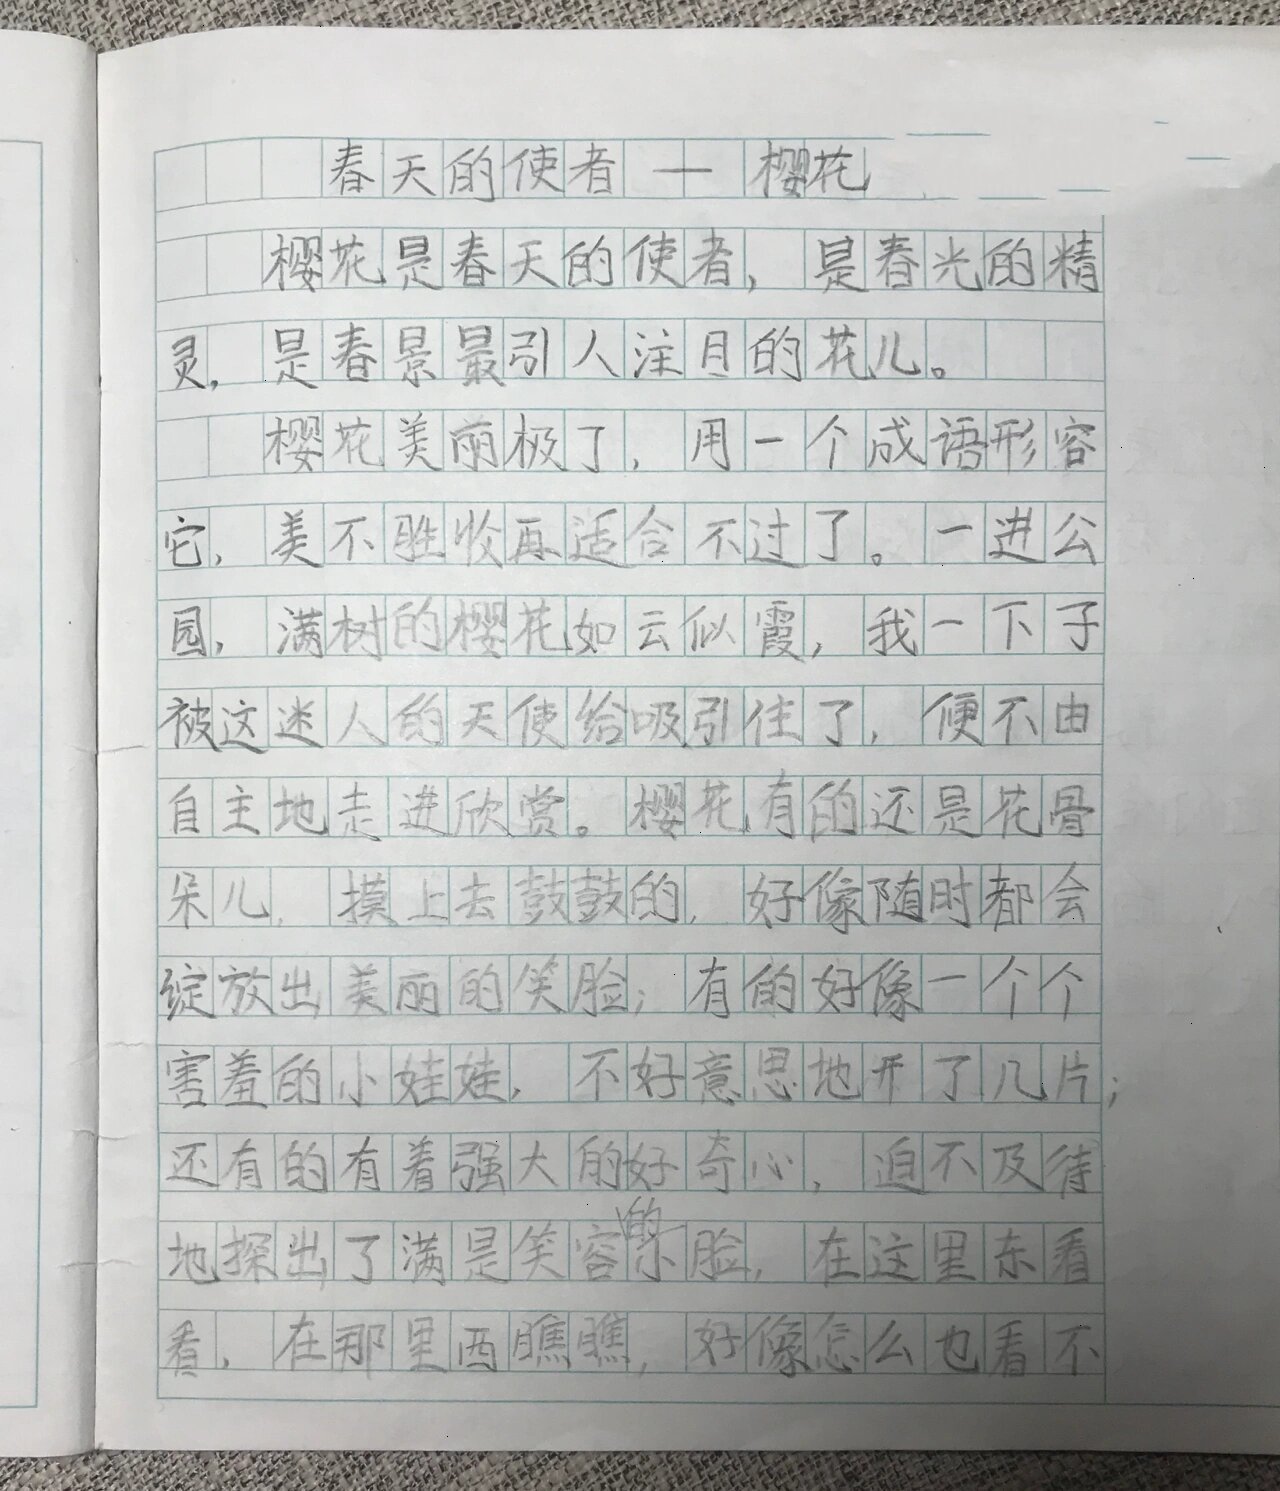 春天的使者——樱花
樱花是春天的使者，是春光的精
灵，是春景最引人注目的花儿。
樱花美丽极了，用一个成语形容
它，美不胜收再适合不过了。一进公
园，满树的樱花如云似霞，我一下子
被这迷人的天使给吸引住了，便不由
自主地走进欣赏。樱花有的还是花骨
朵儿，摸上去鼓鼓的，好像随时都会
绽放出美丽的笑脸；有的好像一个个
害羞的小娃娃，不好意思地开了几片；
还有的有着强大的好奇心，迫不及待
地探出了满是笑容的小脸，在这里东看
看，在那里西瞧瞧，好像怎么也看不